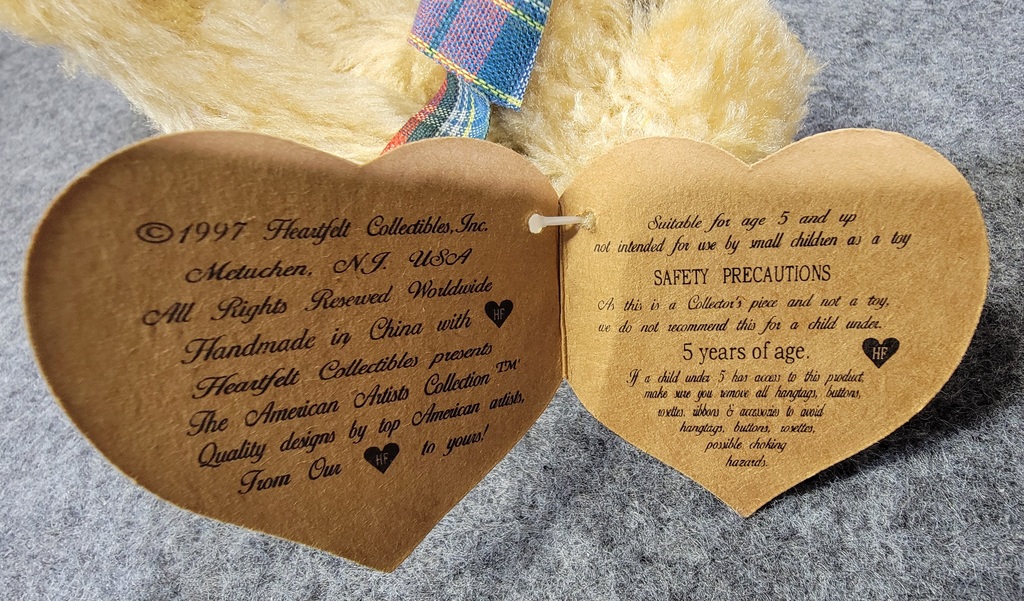 ©1997 Heartfelt Collectibles, Inc.
Metuchen, N.J. USA
All Rights Reserved Worldwide
Handmade in China with HF
Heartfelt Collectibles presents
The American Artists Collection™
Quality designs by top American artists,
From Our HF to yours!
Suitable for age 5 and up
not intended for use by small children as a toy
SAFETY PRECAUTIONS
As this is a Collector's piece and not a toy,
we do not recommend this for a child under.
5 years of age.
HF
If a child under 5 has access to this product,
make sure you remove all hangtags, buttons,
rosettes, ribbons & accessories to avoid
hangtags, buttons, rosettes,
possible choking
hazards.